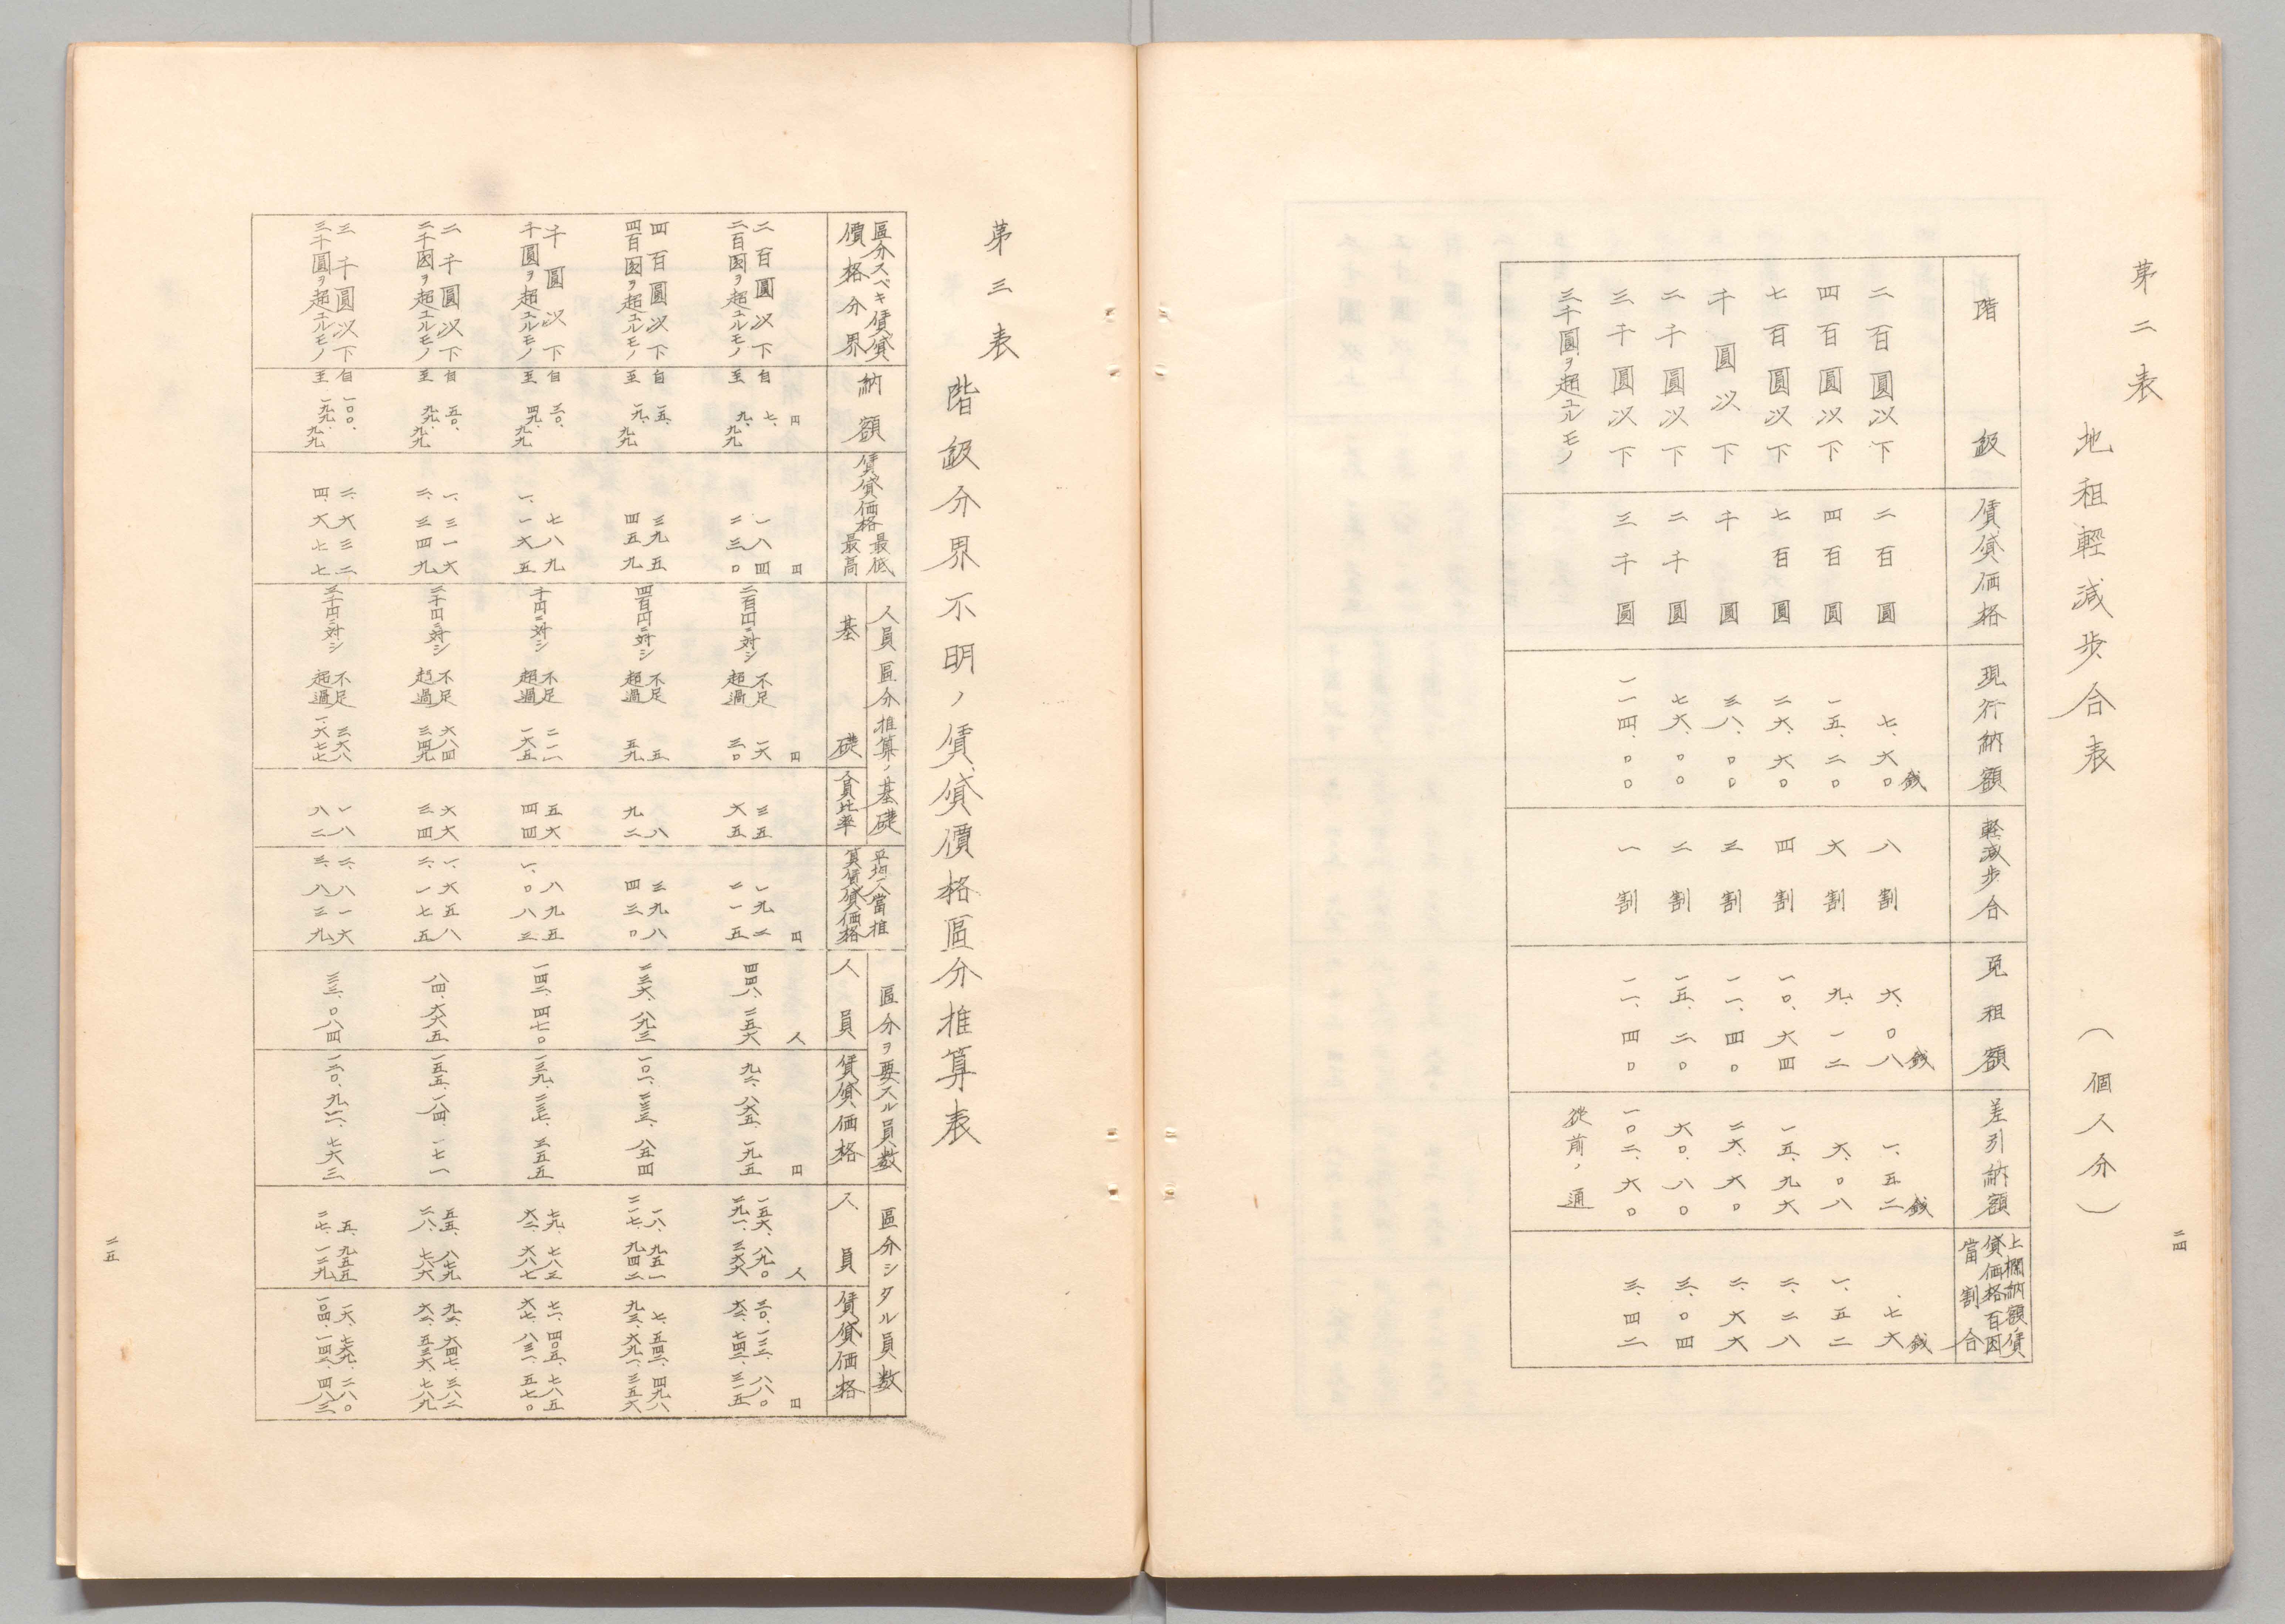 二四
第二表
地租輕減歩合表　（個人分）
階級　賃貸価格　現行納額　軽減歩合　免租額　差引納額　上欄納額賃貸価格百圓當割合
二百圓以下　二百圓　七、六〇銭　八割　六、〇八銭　一、五二銭　、七六銭
四百圓以下　四百圓　一五、二〇　六割　九、一二　六、〇八　一、五二
七百圓以下　七百圓　二六、六〇　四割　一〇、六四　一五、九六　二、二八
千圓以下　千圓　三八、〇〇　三割　一一、四〇　二六、六〇　二、六六
二千圓以下　二千圓　七六、〇〇　二割　一五、二〇　六〇、八〇　三、〇四
三千圓以下　三千圓　一一四、〇〇　一割　一一、四〇　一〇二、六〇　三、四二
三千圓ヲ超ユルモノ　従前ノ通
第三表
階級分界不明ノ賃貸價格區分推算表
區分スベキ賃貸價格分界　納額　賃貸価格最低最高　人員區分推算ノ基礎　基礎　人員比率　平均一人當推算賃貸価格　區分ヲ要スル員数　人員　賃貸価格　區分シタル員数　人員　賃貸価格
二百圓以下　自　七、円　一八四円　二百円ニ対シ　不足　一六円　三五　一九二円　四四八、二五六人　九二、八六五、一九五円　一五六、八九〇人　三〇、一二二、八八〇円
二百圓ヲ超ユルモノ　至　九、九九　二三〇　超過　三〇　六五　二一五　二九一、三六六　六二、七四二、三一五
四百圓以下　自　一五、　三九五　四百円ニ対シ　不足　五　八　三九八　二三六、八九三　一〇一、二三三、八五四　一八、九五一　七、五四二、四九八
四百圓ヲ超ユルモノ　至　一九、九九　四五九　超過　五九　九二　四三〇　二一七、九四二　九三、六九一、三五六
千圓以下　自　三〇、　七八九　千円ニ対シ　不足　二一一　五六　八九五　一四二、四七〇　一三九、二三七、三五五　七九、七八三　七一、四〇五、七八五
千圓ヲ超ユルモノ　至　四九、九九　一、一六五　超過　一六五　四四　一、〇八三　六二、六八七　六七、八三一、五七〇
二千圓以下　自　五〇、　一、三一六　二千円ニ対シ　不足　六八四　六六　一、六五八　八四、六六五　一五五、一八四、一七一　五五、八七九　九二、六四七、三八二
二千圓ヲ超ユルモノ　至　九九、九九　二、三四九　超過　三四九　三四　二、一七五　二八、七八六　六二、五三六、七八九
三千圓以下　自　一〇〇、　二、六三二　三千円ニ対シ　不足　三六八　一八　二、八一六　三三、〇八四　一二〇、九一一、七六三　五、九五五　一六、七六九、二八〇
三千圓ヲ超ユルモノ　至　一九九、九九　四、六七七　超過　一、六七七　八二　三、八三九　二七、一二九　一〇四、一四二、四八三
二五